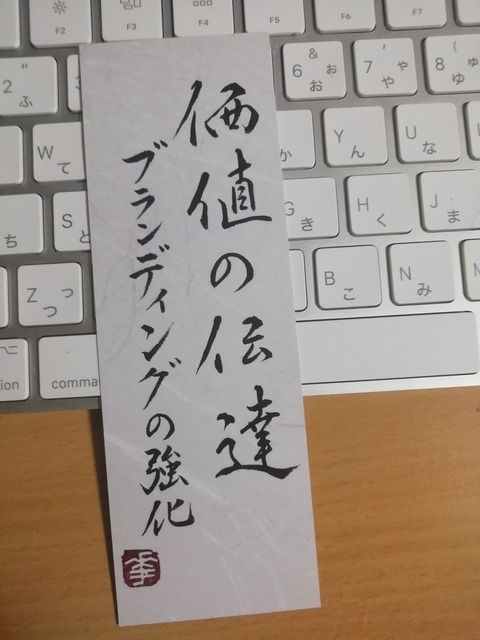 価値の伝達
ブランディングの強化
F2
F3
F4
F5
F6
F7
2 " ふ
6 & お ぉ
7 ' や ゃ
8 ( ゆ ゅ
W て
か
Y ん
U な
ち
S と
G き
H く
J ま
Z つ っ
B こ
N み
M
ption
comma